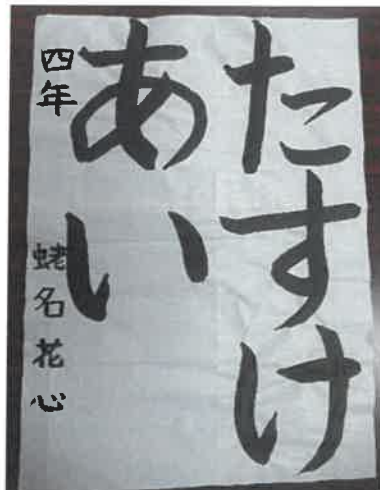 たすけ
あい
四年
蛯名花心